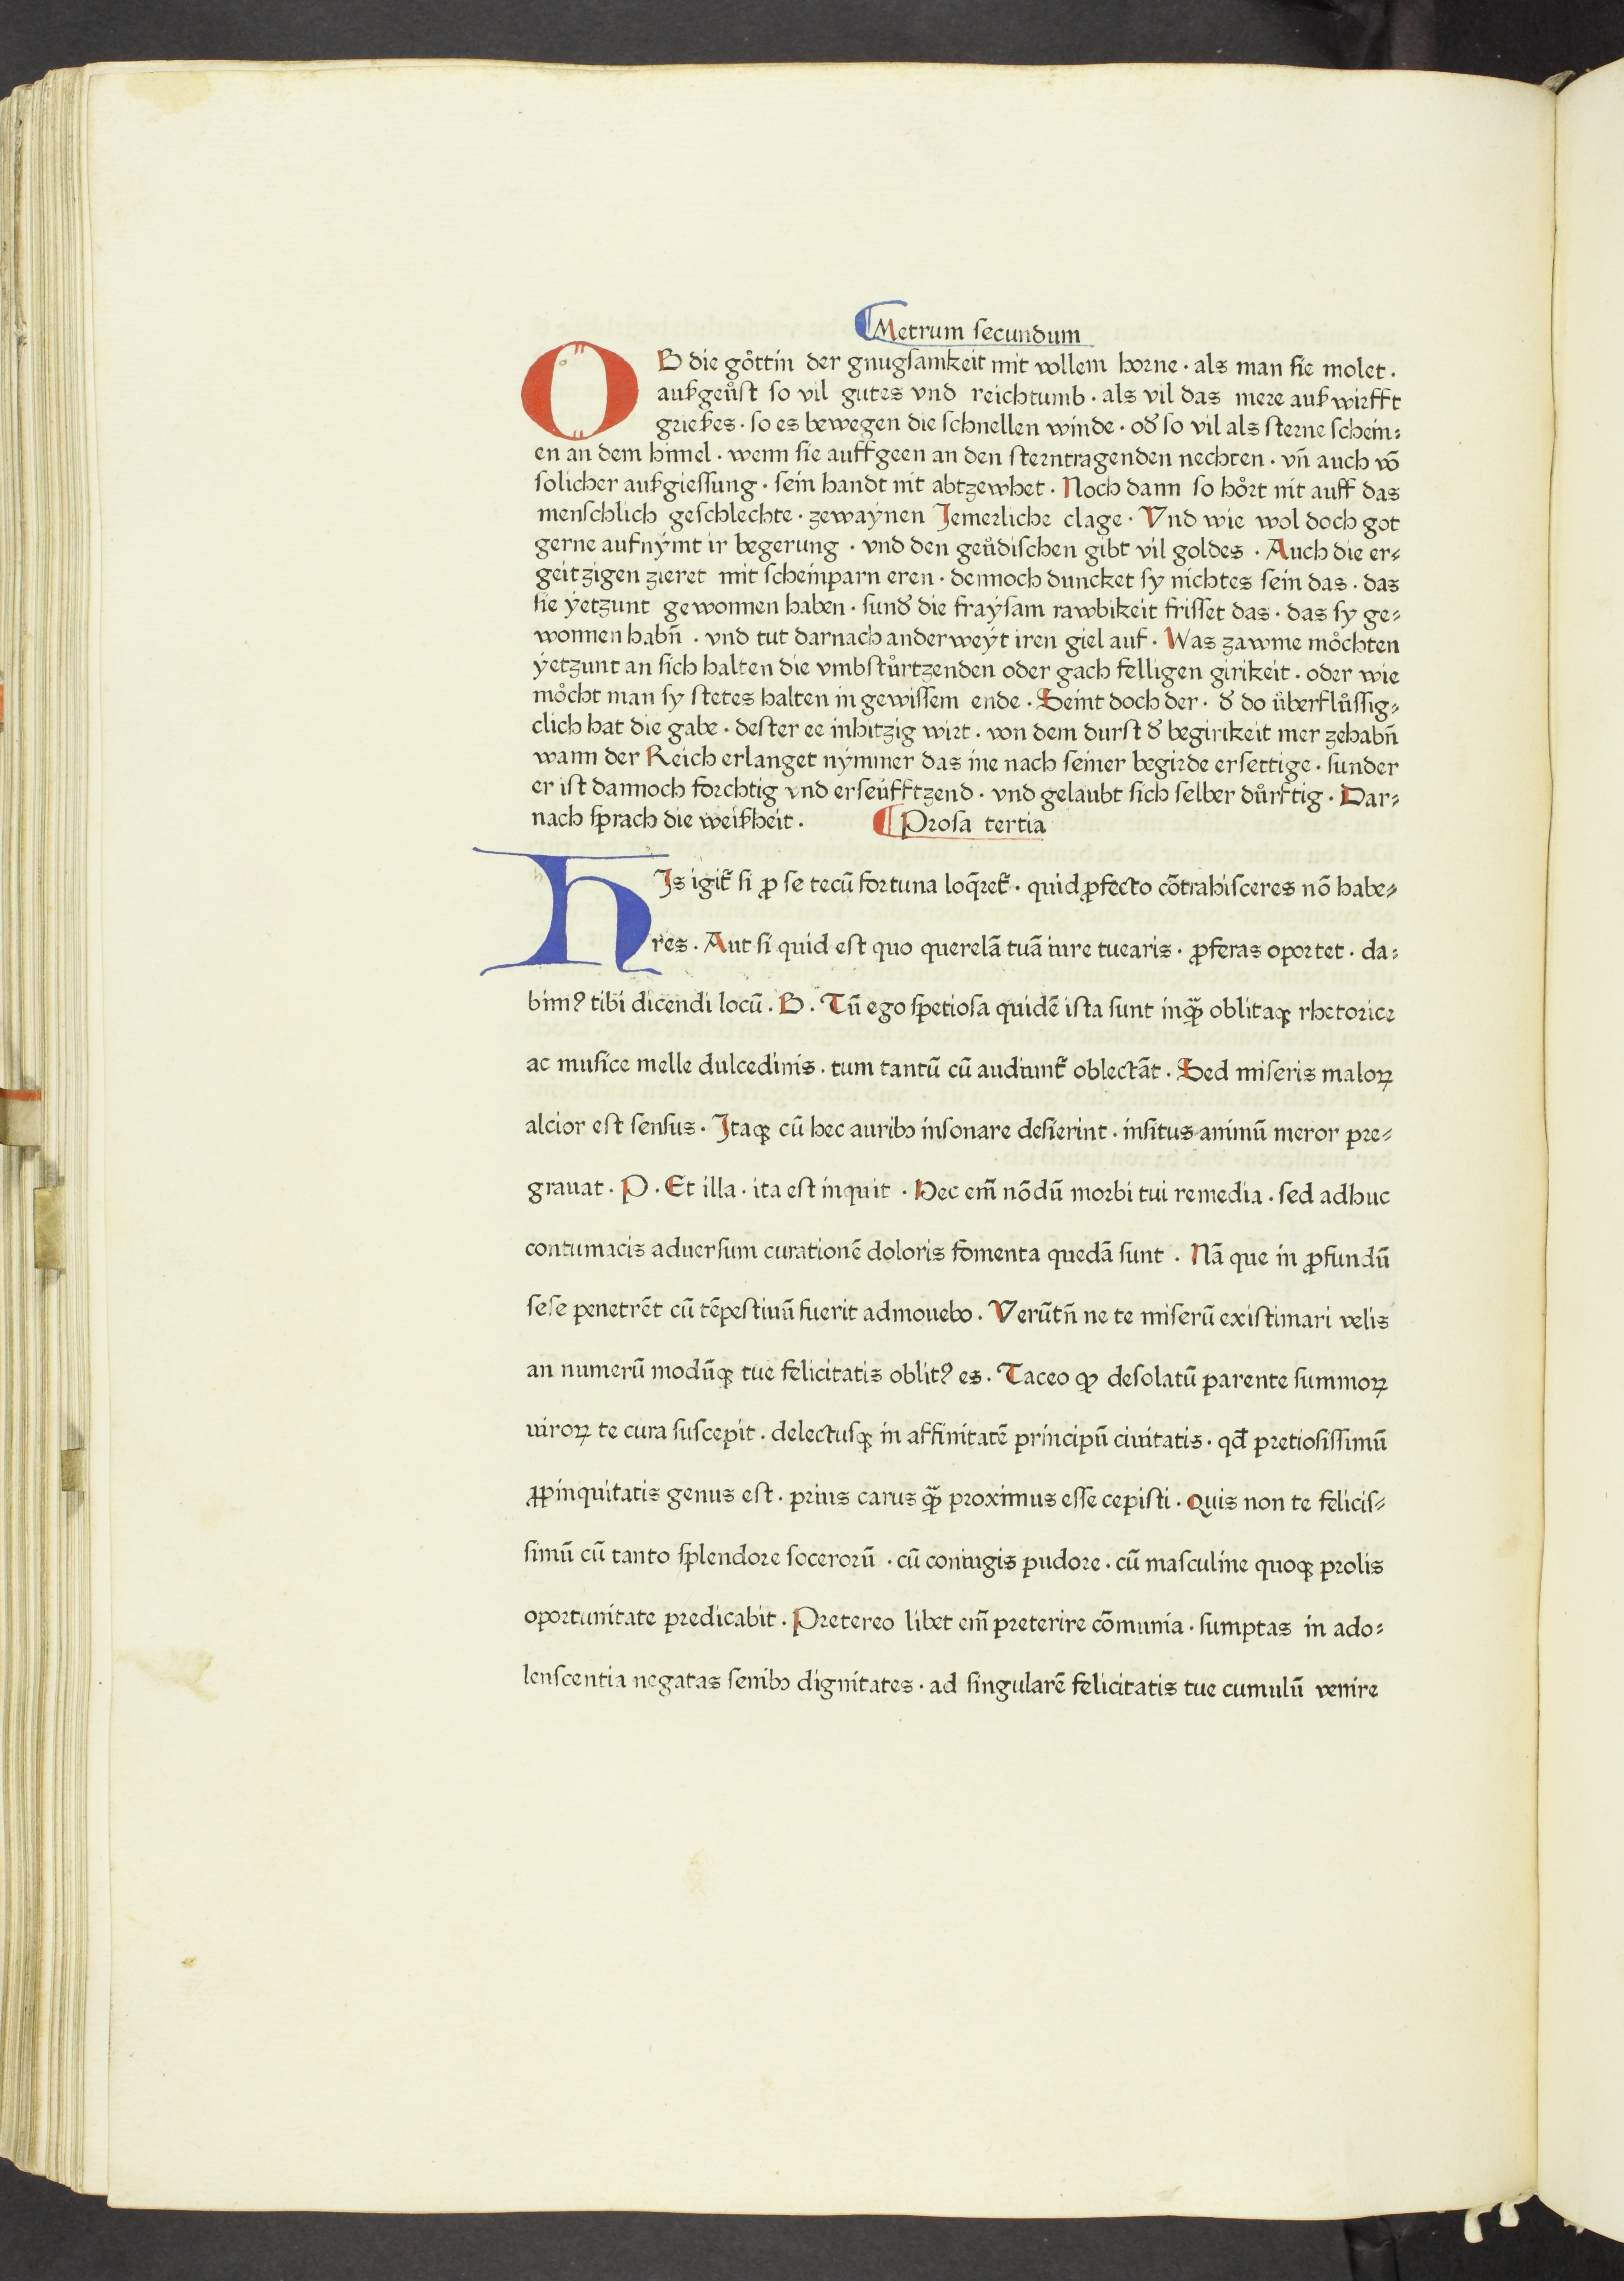 ¶ Metrum secundum
OB die goͤttin der gnugsamkeit mit vollem horne · als man sie molet ·
außgeuͤst so vil gutes vnd reichtumb · als vil das mere auß wirfft
grießes · so es bewegen die schnellen winde · oď so vil als sterne schein⸗
en an dem hinnel · wenn sie auffgeen an den sterntragenden nechten · vn̄ auch vō
solicher außgiessung · sein handt nit abtzewhet · Noch dann so hoͤrt nit auff das
menschlich geschlechte · zewaÿnen Jemerliche clage · Vnd wie wol doch got
gerne aufnÿmt ir begerung · vnd den geuͤdischen gibt vil goldes · Auch die er⸗
geitzigen zieret mit scheinparn eren · dennoch duncket sy nichtes sein das · das
sie ÿetzunt gewonnen haben · sunď die fraÿsam rawbikeit frisset das · das sy ge⸗
wonnen habn̄ · vnd tut darnach anderweÿt iren giel auf · Was zawme moͤchten
ÿetzunt an sich halten die vmbstuͤrtzenden oder gach felligen girikeit · oder wie
moͤcht man sy stetes halten in gewissem ende · Seint doch der · ď do uͤberfluͤssig⸗
clich hat die gabe · dester ee inhitzig wirt · von dem durst ď begirikeit mer zehabn̄
wann der Reich erlanget nÿmmer das ine nach seiner begirde ersettige · sunder
er ist dannoch forchtig vnd erseufftzend · vnd gelaubt sich selber duͤrftig · Dar⸗
nach sprach die weißheit · ¶ Prosa tertia
HJs igit᷑ si ꝓ se tecū fortuna loq̄ret᷑ · quid ꝓfecto cōtrahisceres nō habe⸗
res · Aut si quid est quo querelā tuā iure tuearis · ꝓferas oportet · da⸗
bimꝰ tibi dicendi locū · B · Tū ego spetiosa quidē ista sunt inqͣꝫ oblitaqꝫ rhetorice
ac musice melle dulcedinis · tum tantū cū audiunt᷑ oblectāt · Sed miseris maloꝝ
alcior est sensus · Jtaqꝫ cū hec auribꝫ insonare desierint · insitus animū meror pre⸗
grauat · P · Et illa · ita est inquit · Hec em̄ nōdū morbi tui remedia · sed adhuc
contumacis aduersum curationē doloris fomenta quedā sunt · Nā que in ꝓfundū
sese penetrēt cū tēpestiuū fuerit admouebo · Verūtn̄ ne te miserū existimari velis
an numerū modūqꝫ tue felicitatis oblitꝰ es · Taceo ꝙ desolatū parente summoꝝ
uiroꝝ te cura suscepit · delectusqꝫ in affinitatē principū ciuitatis · qd̄ pretiosissimū
ꝓpinquitatis genus est · prius carus qͣꝫ proximus esse cepisti · Quis non te felicis⸗
simū cū tanto splendore socerorū · cū coniugis pudore · cū masculine quoqꝫ prolis
oportunitate predicabit · Pretereo libet em̄ preterire cōmunia · sumptas in ado⸗
lenscentia negatas senibꝫ dignitates · ad singularē felicitatis tue cumulū venire